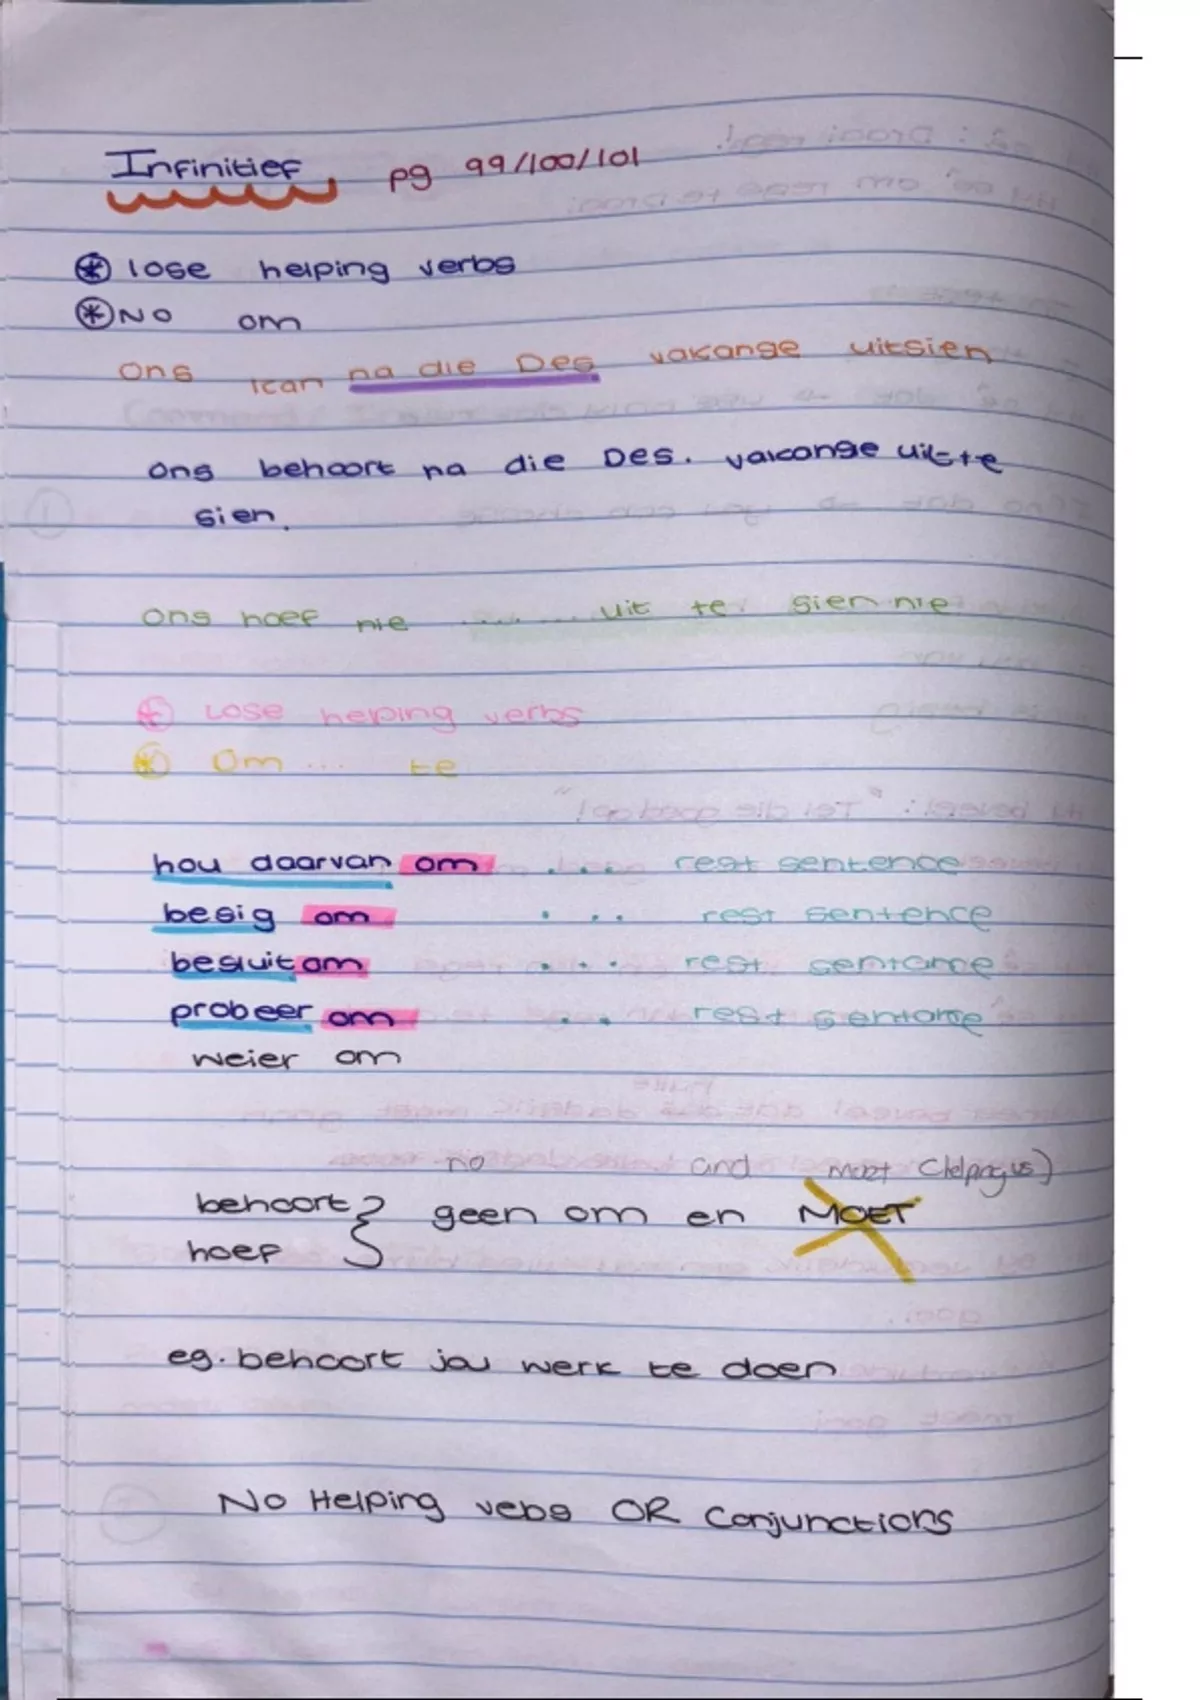 Infinitief pg 99/100/101
* lose helping verbs
* No om
Ons kan na die Des vakange uitsien
Ons behoort na die Des. vakange uit te
sien.
Ons hoef nie ......... uit te sien nie
* Lose helping verbs
* Om .... te
hou daarvan om ... rest sentence
besig om ... rest sentence
besluit om ... rest sentence
probeer om .. rest sentence
weier om
no and moet
behoort } geen om en MOET
hoef
eg. behoort jou werk te doen
No Helping vebs OR Conjunctions